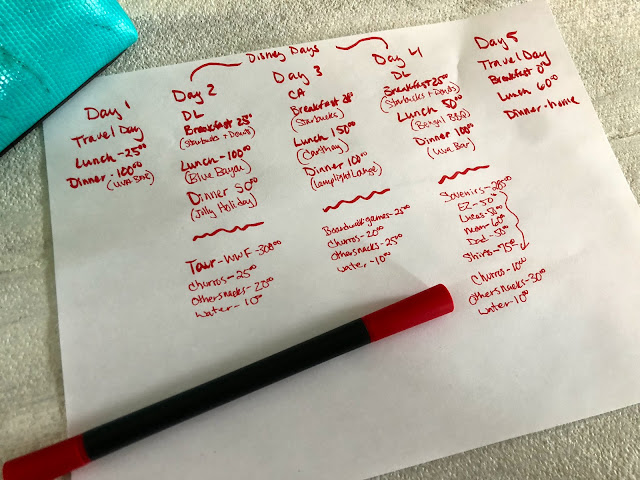 Disney Days
Day 1
Travel Day
Lunch - 25⁰⁰
Dinner - 100⁰⁰
Day 2
DL
Breakfast 25⁰⁰
(Starbucks + Donuts)
Lunch - 100⁰⁰
(Blue Bayou)
Dinner 50⁰⁰
(Jolly Holiday)
Tour - WWF - 300⁰⁰
Churros - 25⁰⁰
Other snacks - 20⁰⁰
Water - 10⁰⁰
Day 3
CA
Breakfast
(Starbucks)
Lunch 150⁰⁰
(Carthay)
Dinner 100⁰⁰
(Lamplight Lounge)
Boardwalk games - 25⁰⁰
Churros - 20⁰⁰
Other snacks - 25⁰⁰
Water - 10⁰⁰
Day 4
DL
Breakfast 25⁰⁰
(Starbucks + Donuts)
Lunch 50⁰⁰
(Bengal BBQ)
Dinner 100⁰⁰
(UVA Bar)
EZ - 50⁰⁰
Lucas - 50⁰⁰
Mom - 60⁰⁰
Dad - 50⁰⁰
Shirts - 75⁰⁰
Churros - 10⁰⁰
Other snacks - 30⁰⁰
Water - 10⁰⁰
Day 5
Travel Day
Breakfast 0⁰⁰
Lunch 60⁰⁰
Dinner - home